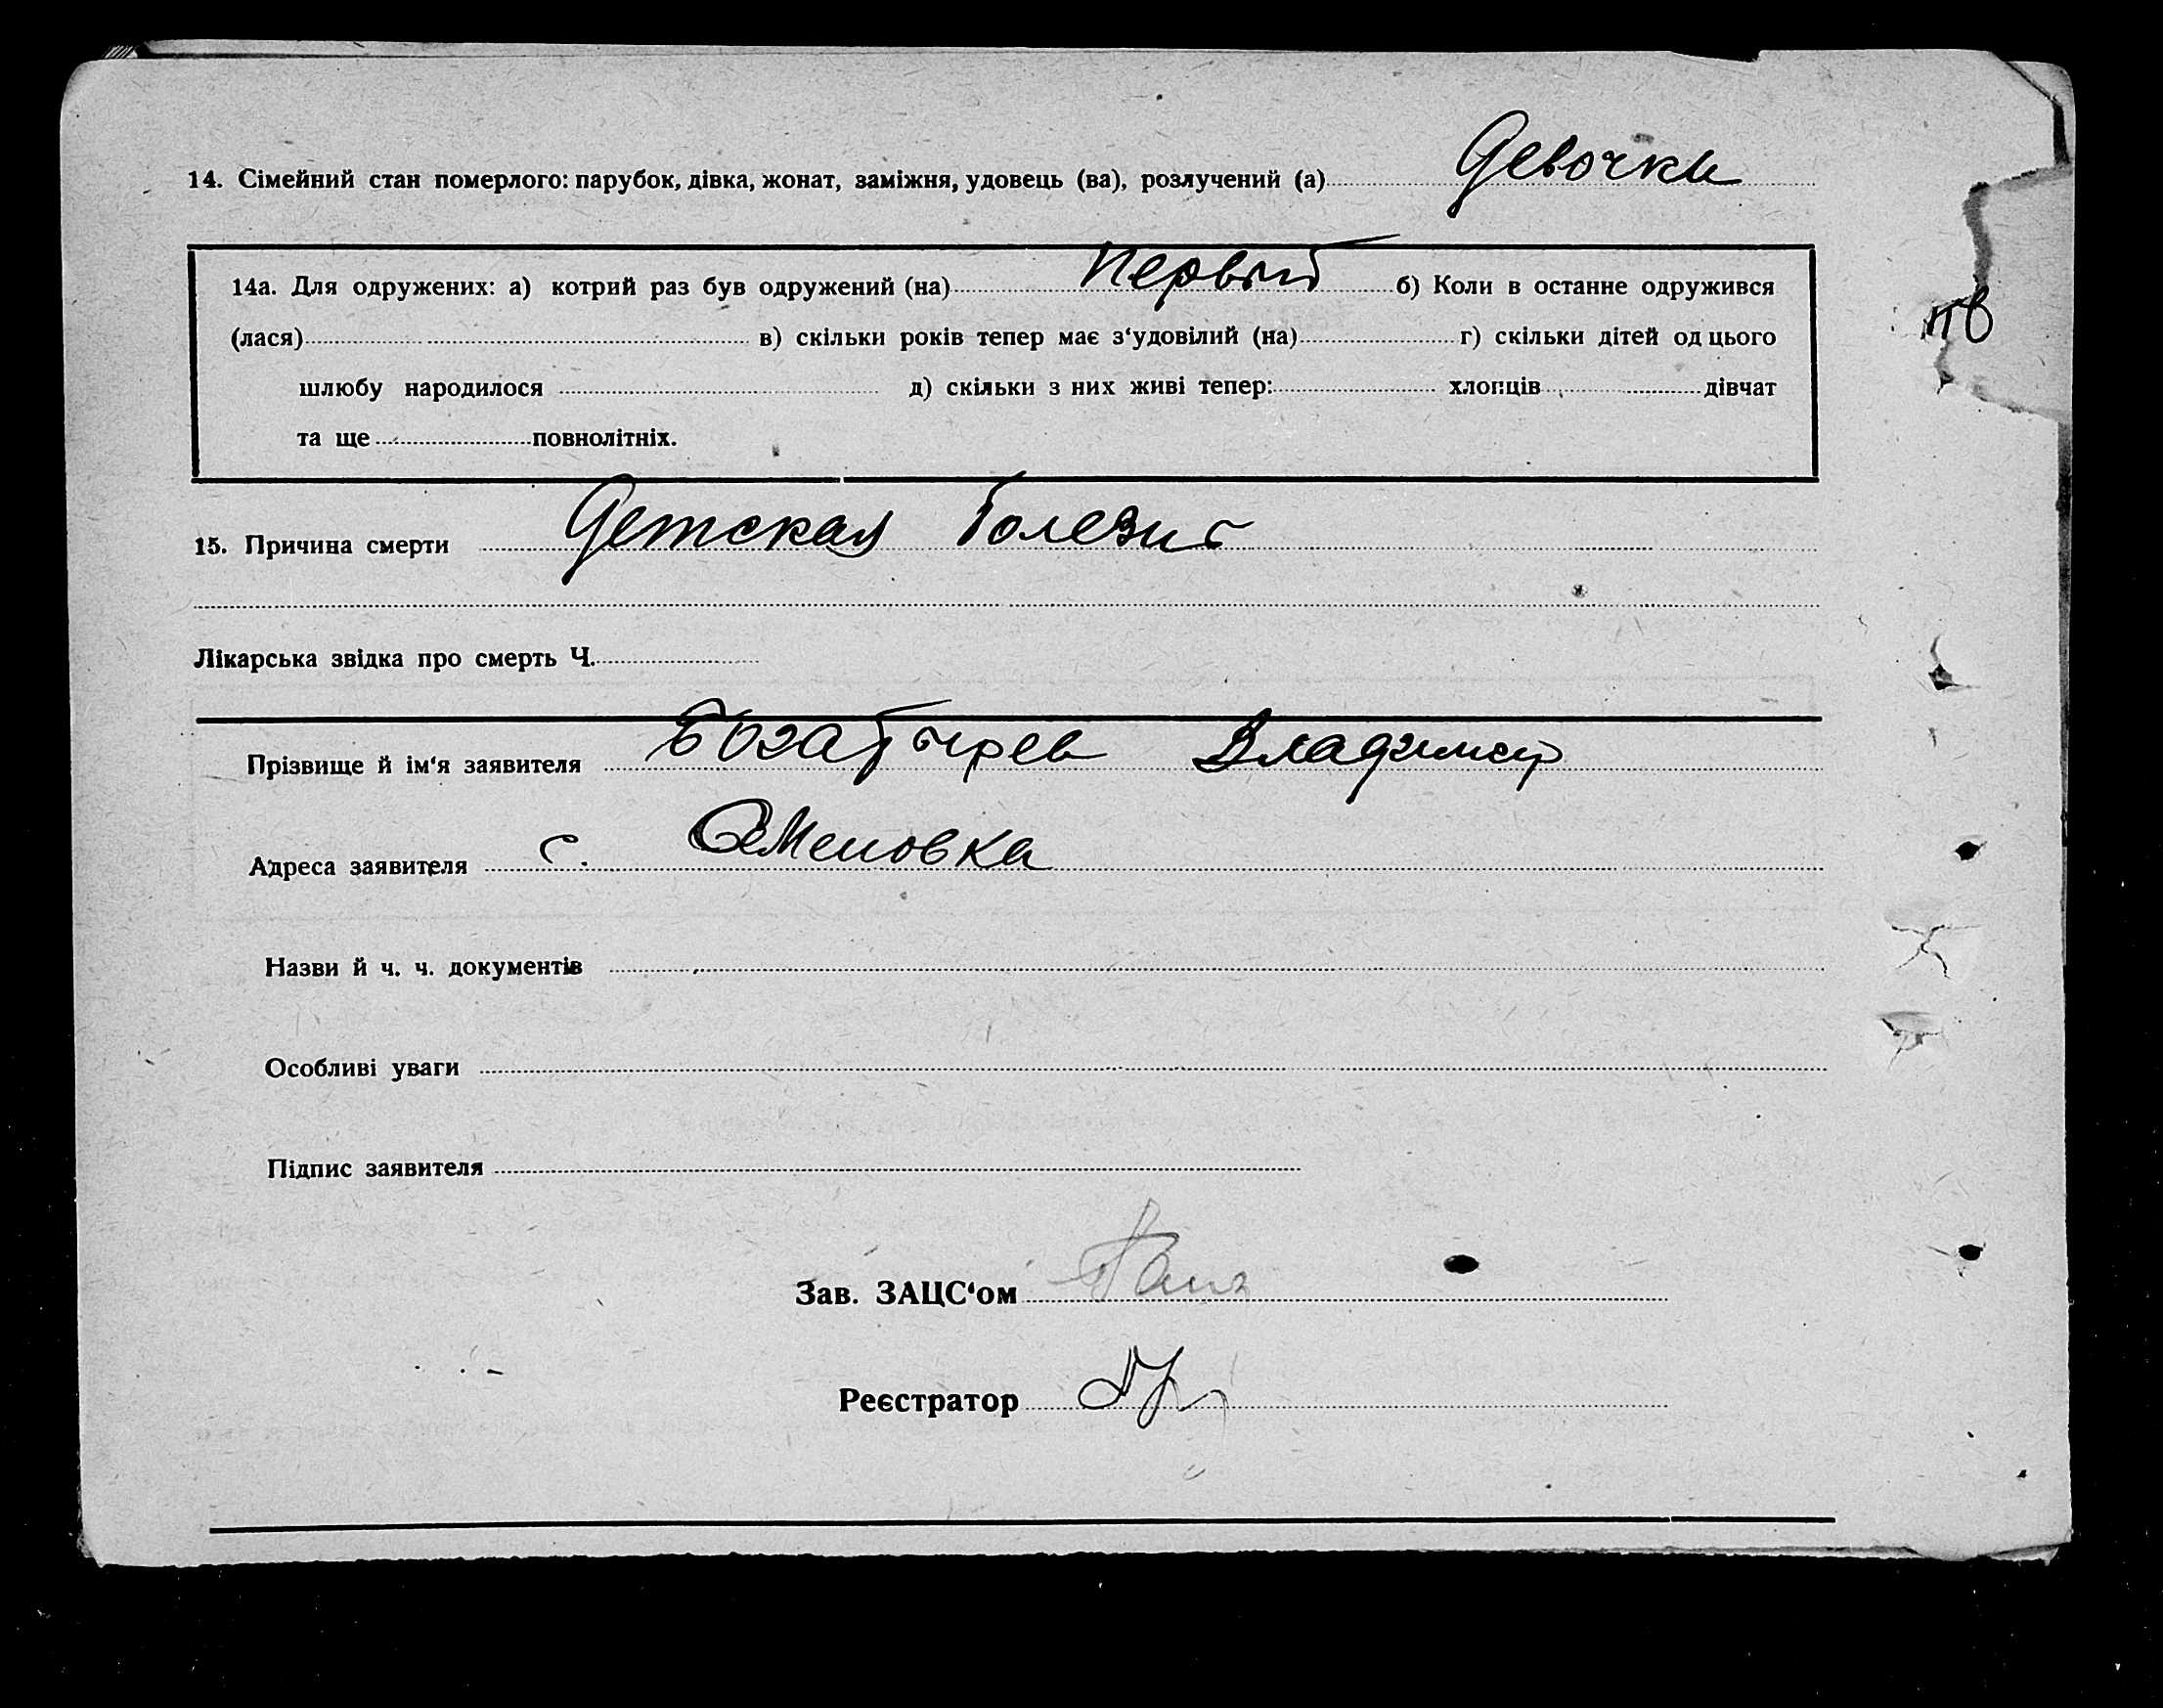 14. Сімейний стан померлого: парубок, дівка, жонат, заміжня, удовець (ва), розлучений (а) Девочки
14а. Для одружених: а) котрий раз був одружений (на) Первый б) Коли в останне одружився
(лася) в) скільки років тепер має з‘удовілий (на) г) скільки дітей од цього
шлюбу народилося д) скільки з них живі тепер: хлопців дівчат
та ще повнолітніх.
15. Причина смерти Детская болезнь
Лікарська звідка про смерть Ч.
Прізвище й ім‘я заявителя Богатырев Владимир
Адреса заявителя с. Семеновка
Назви й ч. ч. документів
Особливі уваги
Підпис заявителя
Зав. ЗАЦС‘ом
Реєстратор